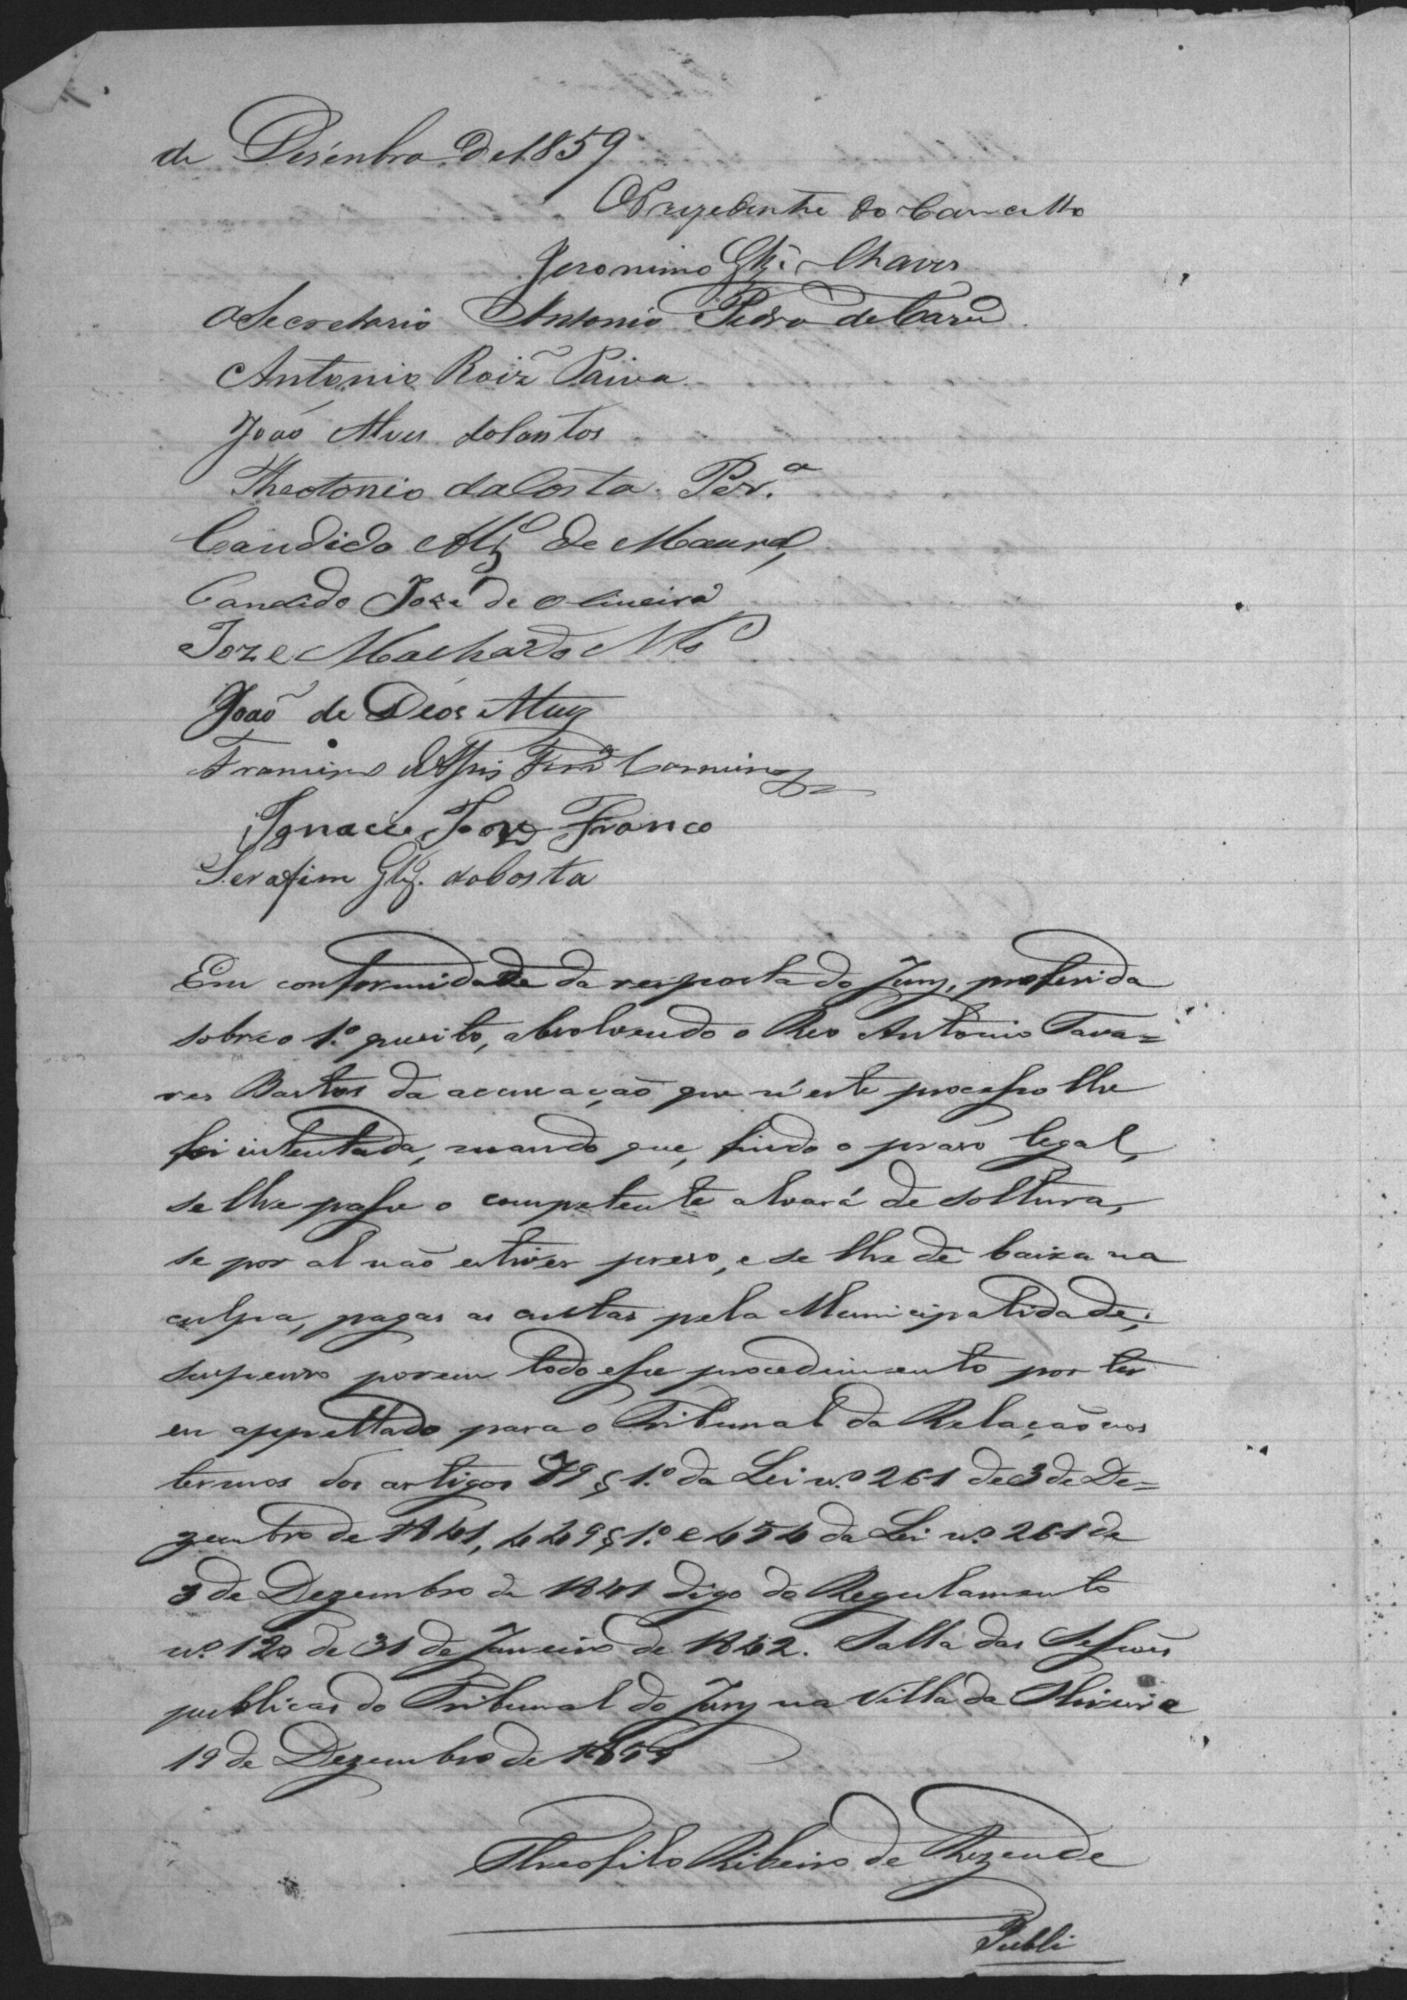 de Desenbro de 1859
O Prezedente do Concelho
Jeronimo Glz.ᵉ Chaves
O Secretario Antonio Pedro de
Antonio Roiz̃ Paiva
João Alves dosantos
Theotonio da Costa Per.ª
Candido Alz de Moura
Candido José de Oliveira
Joze Machado Nto
João de Deos Alvez
Francisco de Assis Ferr.ª
Ignacio Joze Franco
Serafim Glz. da Costa
Em conformidade da resposta do Jury, proferida
sobre o 1.º quesito, absolvendo o Reo Antonio Tava=
res Bastos da accusação que n'este processo lhe
foi intentada, mando que, findo o praso legal,
se lhe passe o competente alvará de soltura,
se por al não estiver preso, e se lhe dê baixa na
culpa, pagas as custas pela Municipalidade;
suspenso porem todo esse procedimento por ter
eu appellado para o Tribunal da Relação nos
termos dos artigos 79 § 1.º da Lei n.º 261 de 3 de De=
zembro de 1841, 449 § 1.º e 454 da Lei n.º 261 de
3 de Dezembro de 1841 digo do Regulamento
n.º 120 de 31 de Janeiro de 1842. Salla das Sessões
publicas do Tribunal do Jury na Villa da Oliveira
19 de Dezembro de 1859
Theofilo Ribeiro de Rezende
Publi